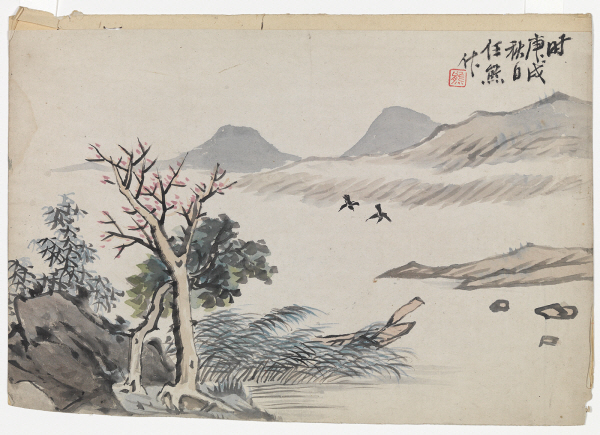 时
庚戌
秋日
任熊
作